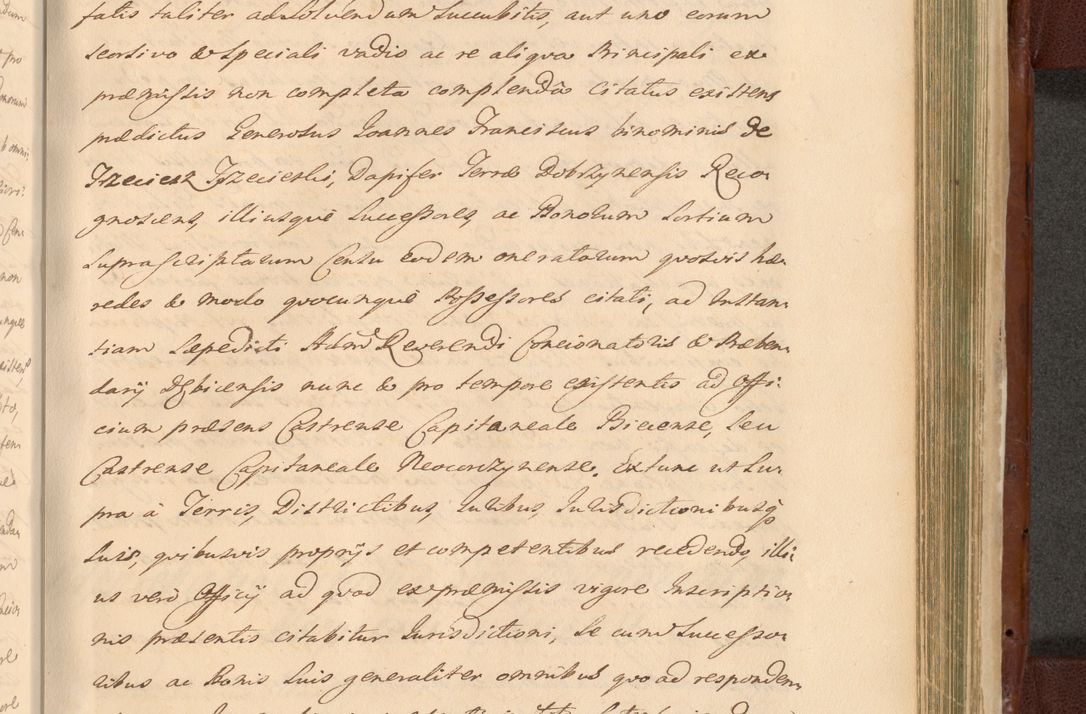 satis taliter adsolvendum succubitis, aut uno eorum
seorsivo & speciali vadio ac re aliqva Principali ex
præmissis non completa complendâo citatus existens
prædictus Generosus Joannes Franciscus binominis de
Trzeciesz Trzecieski, Dapifer Terræ Dobrzynensis Reco-
gnoscens, illiusqvè Successores, ac Bonorum Sortium
Suprascriptarum Censu eodem oneratarum qvosvis hæ-
redes & modo qvocunqvè Possessores citati, ad Instan-
tiam Sæpedicti Adm Reverendi Concionatoris & Præben-
darij Dębicensis nunc & pro tempore existentis ad Offi-
cium præsens Castrense Capitaneale Biecense, Seu
Castrense Capitaneale Neocorczynense. Extunc ut Su-
pra à Terris, Districtibus, Juribus, Jurisdictionibusq
Suis, qvibusvis proprijs et competentibus recedendo, illi-
us verò Officij ad qvod ex præmissis vigore Inscriptio-
nis præsentis citabitur Jurisdictioni, Se cum Successo-
ribus ac Bonis Suis generaliter omnibus qvo ad responden-